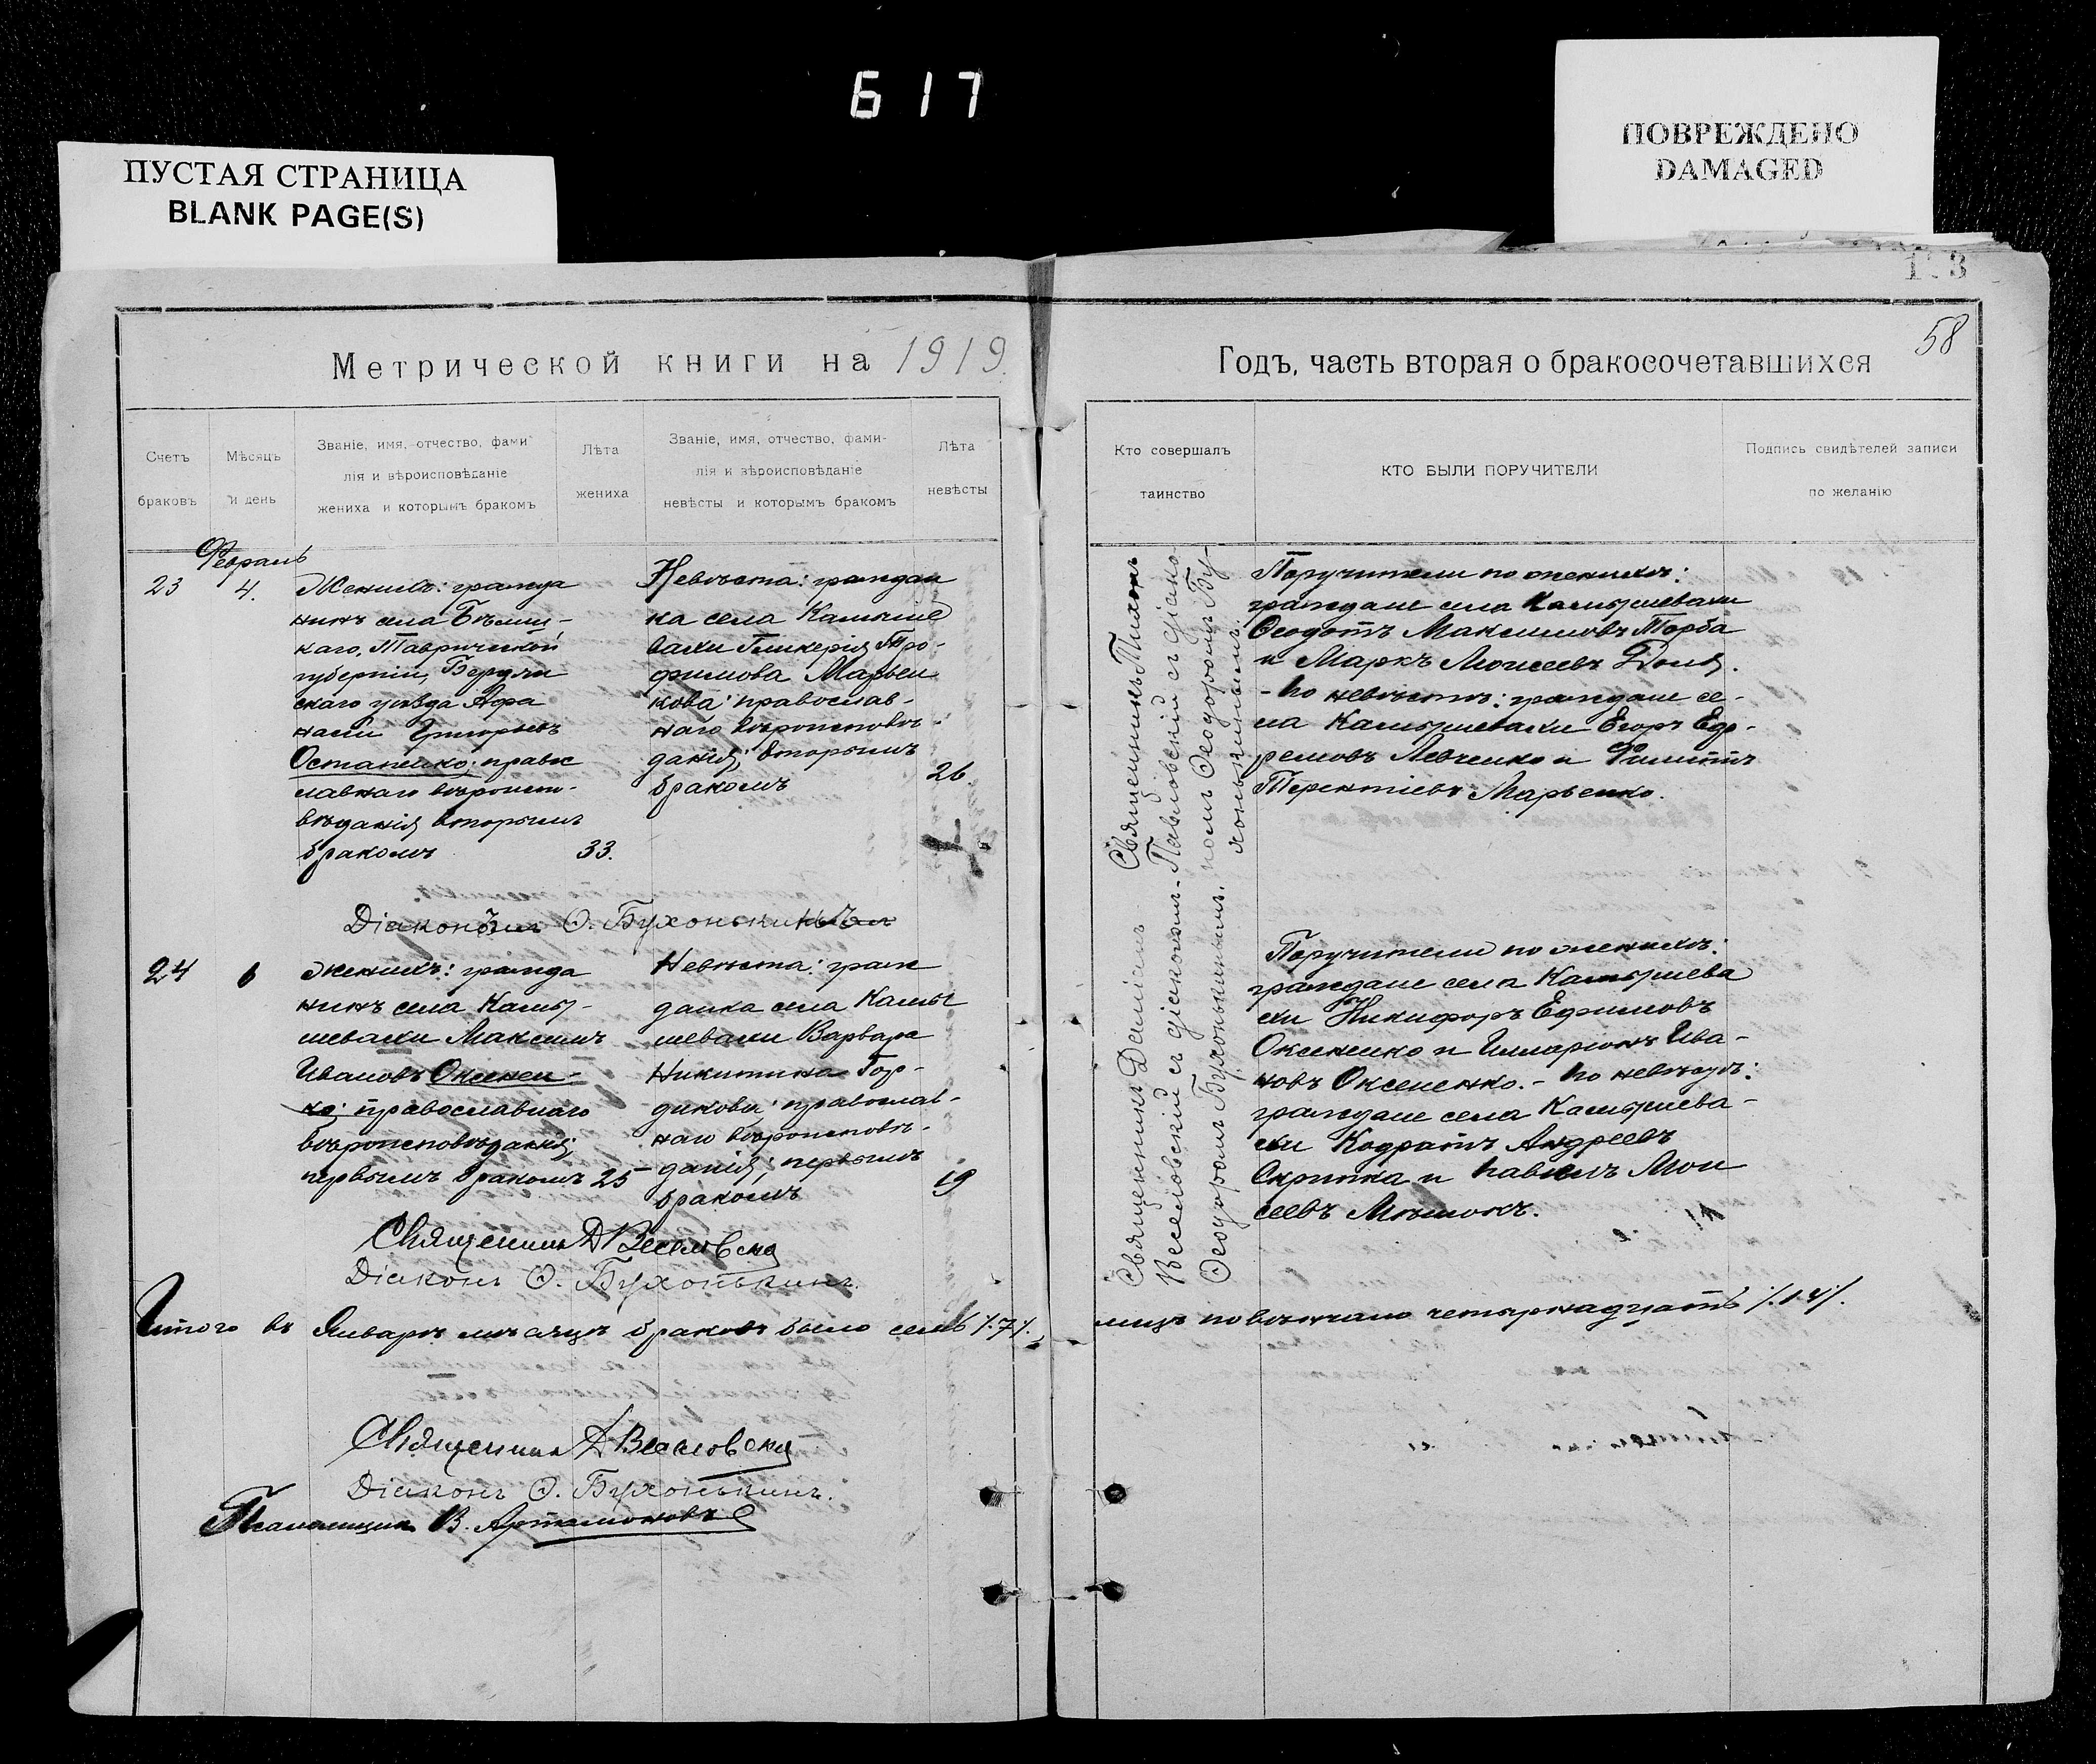 617
ПУСТАЯ СТРАНИЦА
BLANK PAGE(S)
ПОВРЕЖДЕНО
DAMAGED
58
Метрической книги на 1919
Годъ, часть вторая о бракосочетавшихся
Счетъ
браковъ
Мѣсяцъ
и день
Званіе, имя, отчество, фами-
лія и вѣроисповѣданіе
жениха и которымъ бракомъ
Лѣта
жениха
Званіе, имя, отчество, фами-
лія и вѣроисповѣданіе
невѣсты и которымъ бракомъ
Лѣта
невѣсты
Кто совершалъ
таинство
КТО БЫЛИ ПОРУЧИТЕЛИ
Подпись свидѣтелей записи
по желанію
Февраль
23
4.
Женихъ: гражда
нинъ села
каго, Таврической
губерніи, Бердян
скаго уѣзда Афа
насій Григорьевъ
Остапенко; правос
лавнаго вѣроиспо-
вѣданія вторымъ
бракомъ
33.
Невѣста: граждан
ка села Камыше
вахи Гликерія Тро-
фимова Марьен
кова; православ-
наго вѣроисповѣ-
данія; вторымъ
бракомъ
26
Священникъ Тихонъ
Павловскій съ діако-
номъ Ѳеодоромъ Бу-
хонькинымъ.
Поручители по женихѣ:
граждане села Камышевахи
Ѳеодотъ Максимовъ Торба
и Маркъ Моисеевъ Доля.
- По невѣстѣ: граждане се-
ла Камышевахи Егоръ Еф-
ремовъ Левченко и Филиппъ
Терентіевъ Марьенко.
Діаконъ Ѳ. Бухонькинъ
24
6
Женихъ: гражда
нинъ села Камы-
шевахи Максимъ
Ивановъ Оксенен-
ко; православнаго
вѣроисповѣданія;
первымъ бракомъ 25
Невѣста: граж
данка села Камы
шевахи Варвара
Никитина Гор-
дикова; православ-
наго вѣроисповѣ-
данія; первымъ
бракомъ
19
Священникъ Даміанъ
Веселовскій съ діакономъ
Ѳеодоромъ Бухонькинымъ.
Поручители по женихѣ:
граждане села Камышева
хи Никифоръ Ефимовъ
Оксененко и Илларіонъ Ива-
новъ Оксененко. - По невѣстѣ:
граждане села Камышева-
хи Кодратъ Андреевъ
Скрипка и Павелъ Мои
сеевъ Мѣшокъ.
Священникъ Д Веселовскій
Діаконъ Ѳ. Бухонькинъ.
Итого въ Январѣ мѣсяцѣ браковъ было семь /.7/.,
лицъ повѣнчано четырнадцать /.14/.
Священникъ Д Веселовскій
Діаконъ Ѳ. Бухонькинъ.
Псаломщикъ В. Артамоновъ